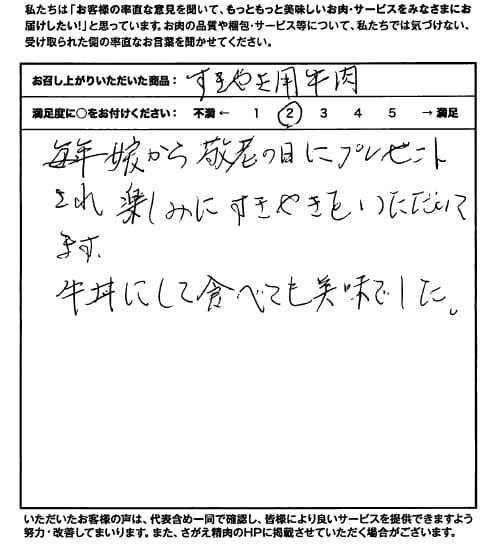 私たちは「お客様の率直な意見を聞いて、もっともっと美味しいお肉・サービスをみなさまにお
届けしたい!」と思っています。お肉の品質や梱包・サービス等について、私たちでは気づけない、
受け取られた側の率直なお言葉を聞かせてください。
お召し上がりいただいた商品： すきやき用牛肉
満足度に○をお付けください： 不満 ← 1 2 3 4 5 → 満足
毎年嫁から敬老の日にプレゼント
され楽しみにすきやきをいただいて
ます。
牛丼にして食べても美味でした。
いただいたお客様の声は、代表含め一同で確認し、皆様により良いサービスを提供できますよう
努力・改善してまいります。また、さがえ精肉のHPに掲載させていただく場合がございます。